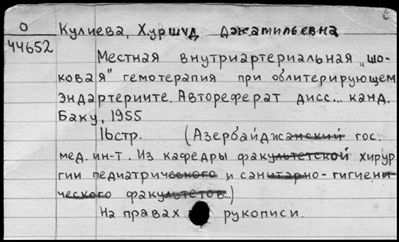 О
44652
Кулиева, Хуршуд Джамильевна
Местная внутриартериальная „шо-
ковая" гемотерапия при облитерирующем
эндартериите. Автореферат дисс... канд.
Баку, 1955
16стр. (Азербайджанский гос.
мед. ин-т. Из кафедры факультетской хирур
гии педиатрического и санитарно-гигиени
ческого факультетов.)
На правах рукописи.